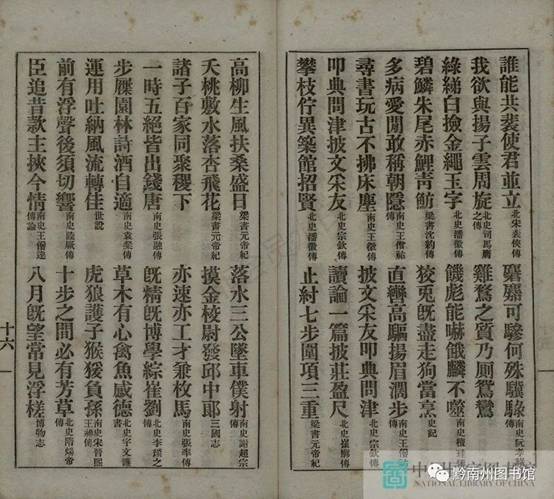 誰能共裴使君並立 北宋裴俠傳
麏麚可驂何殊驥騄
我欲與揚子雲周旋 北史司馬膺之傳
雞鶩之質乃厠鴛鸞
綠綈白撿金繩玉字 北史潘徽傳
饑彪能嚇餓麟不噬
碧鱗朱尾赤鯉青魴 梁書沈約傳
狡兎既盡走狗當烹 史記
多病愛閒敢稱朝隱 南史王僧祐傳
直轡高驅揚眉濶步
尋書玩古不拂床塵 南史王微傳
披文采友叩典問津 北史宗欽傳
叩典問津披文采友 北史宗欽傳
讀論一篇披莊盈尺
攀枝佇異築館招賢 北史潘徽傳
止紂七步圍項三重 梁書元帝紀
高柳生風扶桑盛日 梁書元帝紀
落水三公墜車僕射 南史謝超宗傳
夭桃敷水落杏飛花 梁書元帝紀
摸金校尉發邱中郎 三國志
諸子百家同聚稷下
亦速亦工才兼枚馬 南史張率傳
一時五絕皆出錢唐 南史張融傳
既精既博學綜崔劉
步屧園林詩酒自適 南史袁粲傳
草木有心禽魚感德 北史宇文護傳
運用吐納風流轉佳 世說
虎狼護子猴猨負孫
前有浮聲後須切響 南史陸厥傳
十步之間必有芳草 北史隋煬帝
臣追昔款主挾今情 南史王僧達傳論
八月既望常見浮槎 博物志
十六
黔南州图书馆
NATIONAL LIBRARY OF CHINA